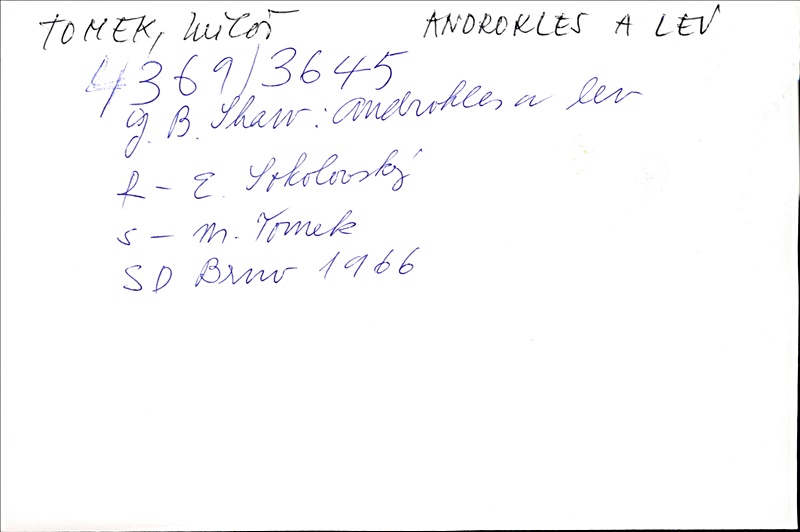 TOMEK, Miloš ANDROKLES A LEV
4369/3645
G. B. Shaw: Androkles a lev
R - E. Sokolovský
S - M. Tomek
SD Brno 1966